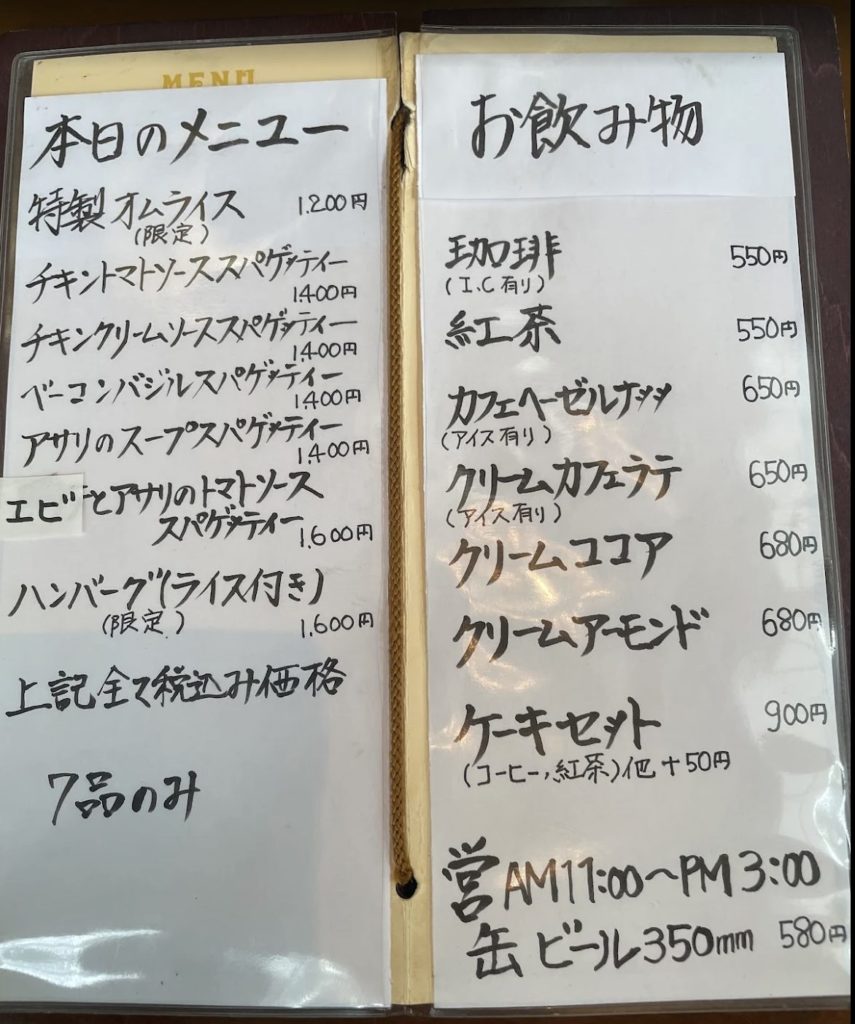 MENU
本日のメニュー
特製オムライス 1.200円
(限定)
チキントマトソーススパゲッティー
1.400円
チキンクリームソーススパゲッティー
1.400円
ベーコンバジルスパゲッティー
1.400円
アサリのスープスパゲッティー
1.400円
エビとアサリのトマトソース
スパゲッティー 1.600円
ハンバーグ(ライス付き)
(限定) 1.600円
上記全て税込み価格
7品のみ
お飲み物
珈琲 550円
(I.C有り)
紅茶 550円
カフェヘーゼルナッツ 650円
(アイス有り)
クリームカフェラテ 650円
(アイス有り)
クリームココア 680円
クリームアーモンド 680円
ケーキセット 900円
(コーヒー,紅茶)他+50円
営AM11:00〜PM3:00
缶ビール350mm 580円